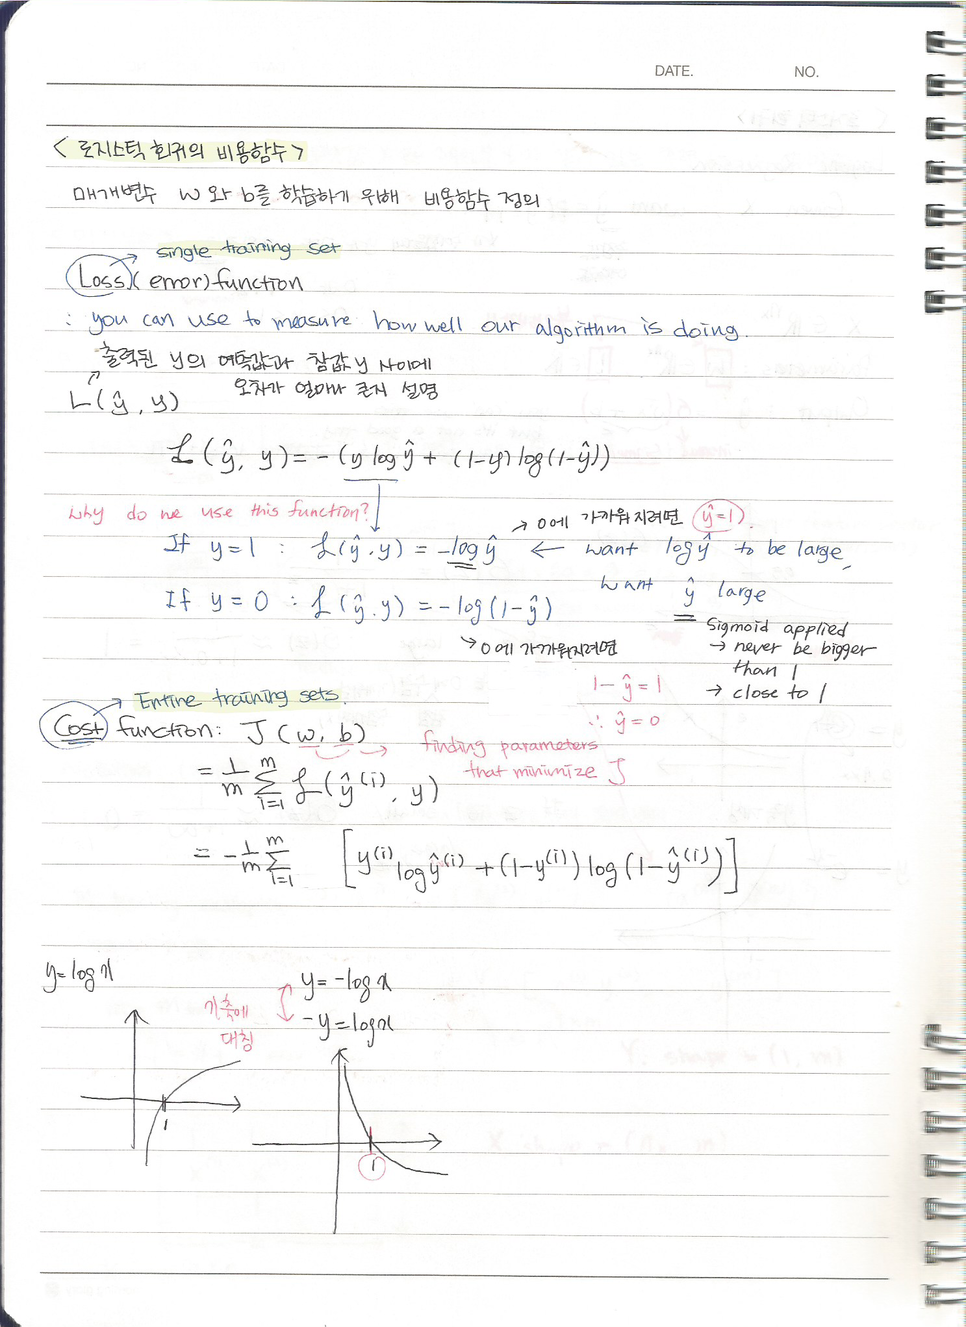 DATE. NO.
< 로지스틱 회귀의 비용함수 >
매개변수 w 와 b를 학습하기 위해 비용함수 정의
single training set
Loss( error) function
: you can use to measure how well our algorithm is doing.
출력된 ŷ의 예측값과 참값 y 사이에
오차가 얼마나 큰지 설명
L(ŷ, y)
ℒ(ŷ, y) = -(y log ŷ + (1-y) log(1-ŷ))
why do we use this function?
→ 0에 가까워지려면 ŷ=1).
If y=1 : ℒ(ŷ, y) = -log ŷ ← want log ŷ to be large,
want ŷ large
If y=0 : ℒ(ŷ, y) = -log(1-ŷ)
= Sigmoid applied
→ never be bigger
than 1
→ close to 1
→ 0에 가까워지려면
1-ŷ=1
∴ ŷ=0
Entire training sets.
Cost function: J(w, b)
→ finding parameters
that minimize J
= 1/m Σ_{i=1}^{m} ℒ(ŷ^(i), y)
= -1/m Σ_{i=1}^{m} [y^(i) log ŷ^(i) + (1-y^(i)) log(1-ŷ^(i))]
y=log x
y=-log x
-y=log x
대칭
1
1